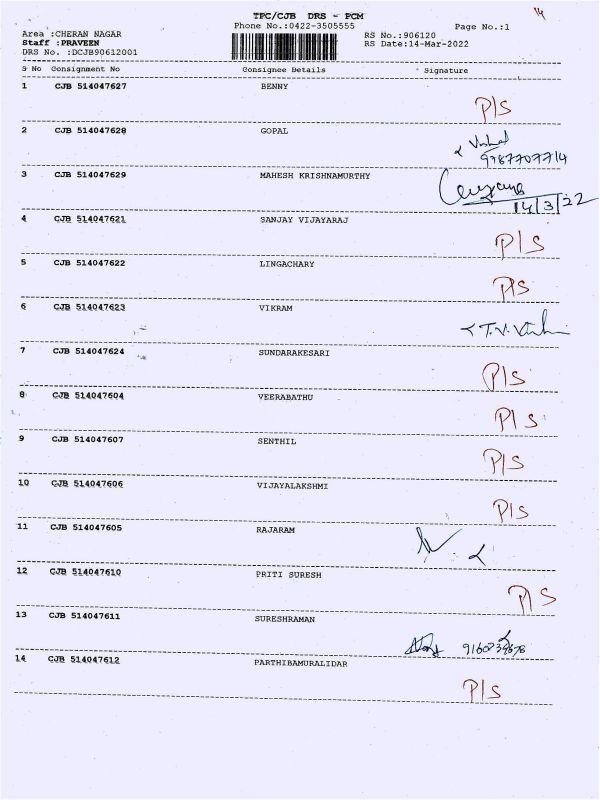 TPC/CJB DRS - PCM
Phone No.:0422-3505555
Page No.:1
14
Area :CHERAN NAGAR
RS No.:906120
Staff :PRAVEEN
RS Date:14-Mar-2022
DRS No. :DCJB90612001
S No Consignment No Consignee Details Signature
1 CJB 514047627 BENNY
P/S
2 CJB 514047628 GOPAL
9787707714
3 CJB 514047629 MAHESH KRISHNAMURTHY
14/3/22
4 CJB 514047621 SANJAY VIJAYARAJ
P/S
5 CJB 514047622 LINGACHARY
P/S
6 CJB 514047623 VIKRAM
7 CJB 514047624 SUNDARAKESARI
P/S
8 CJB 514047604 VEERABATHU
P/S
9 CJB 514047607 SENTHIL
P/S
10 CJB 514047606 VIJAYALAKSHMI
P/S
11 CJB 514047605 RAJARAM
12 CJB 514047610 PRITI SURESH
P/S
13 CJB 514047611 SURESHRAMAN
14 CJB 514047612 PARTHIBAMURALIDAR
P/S